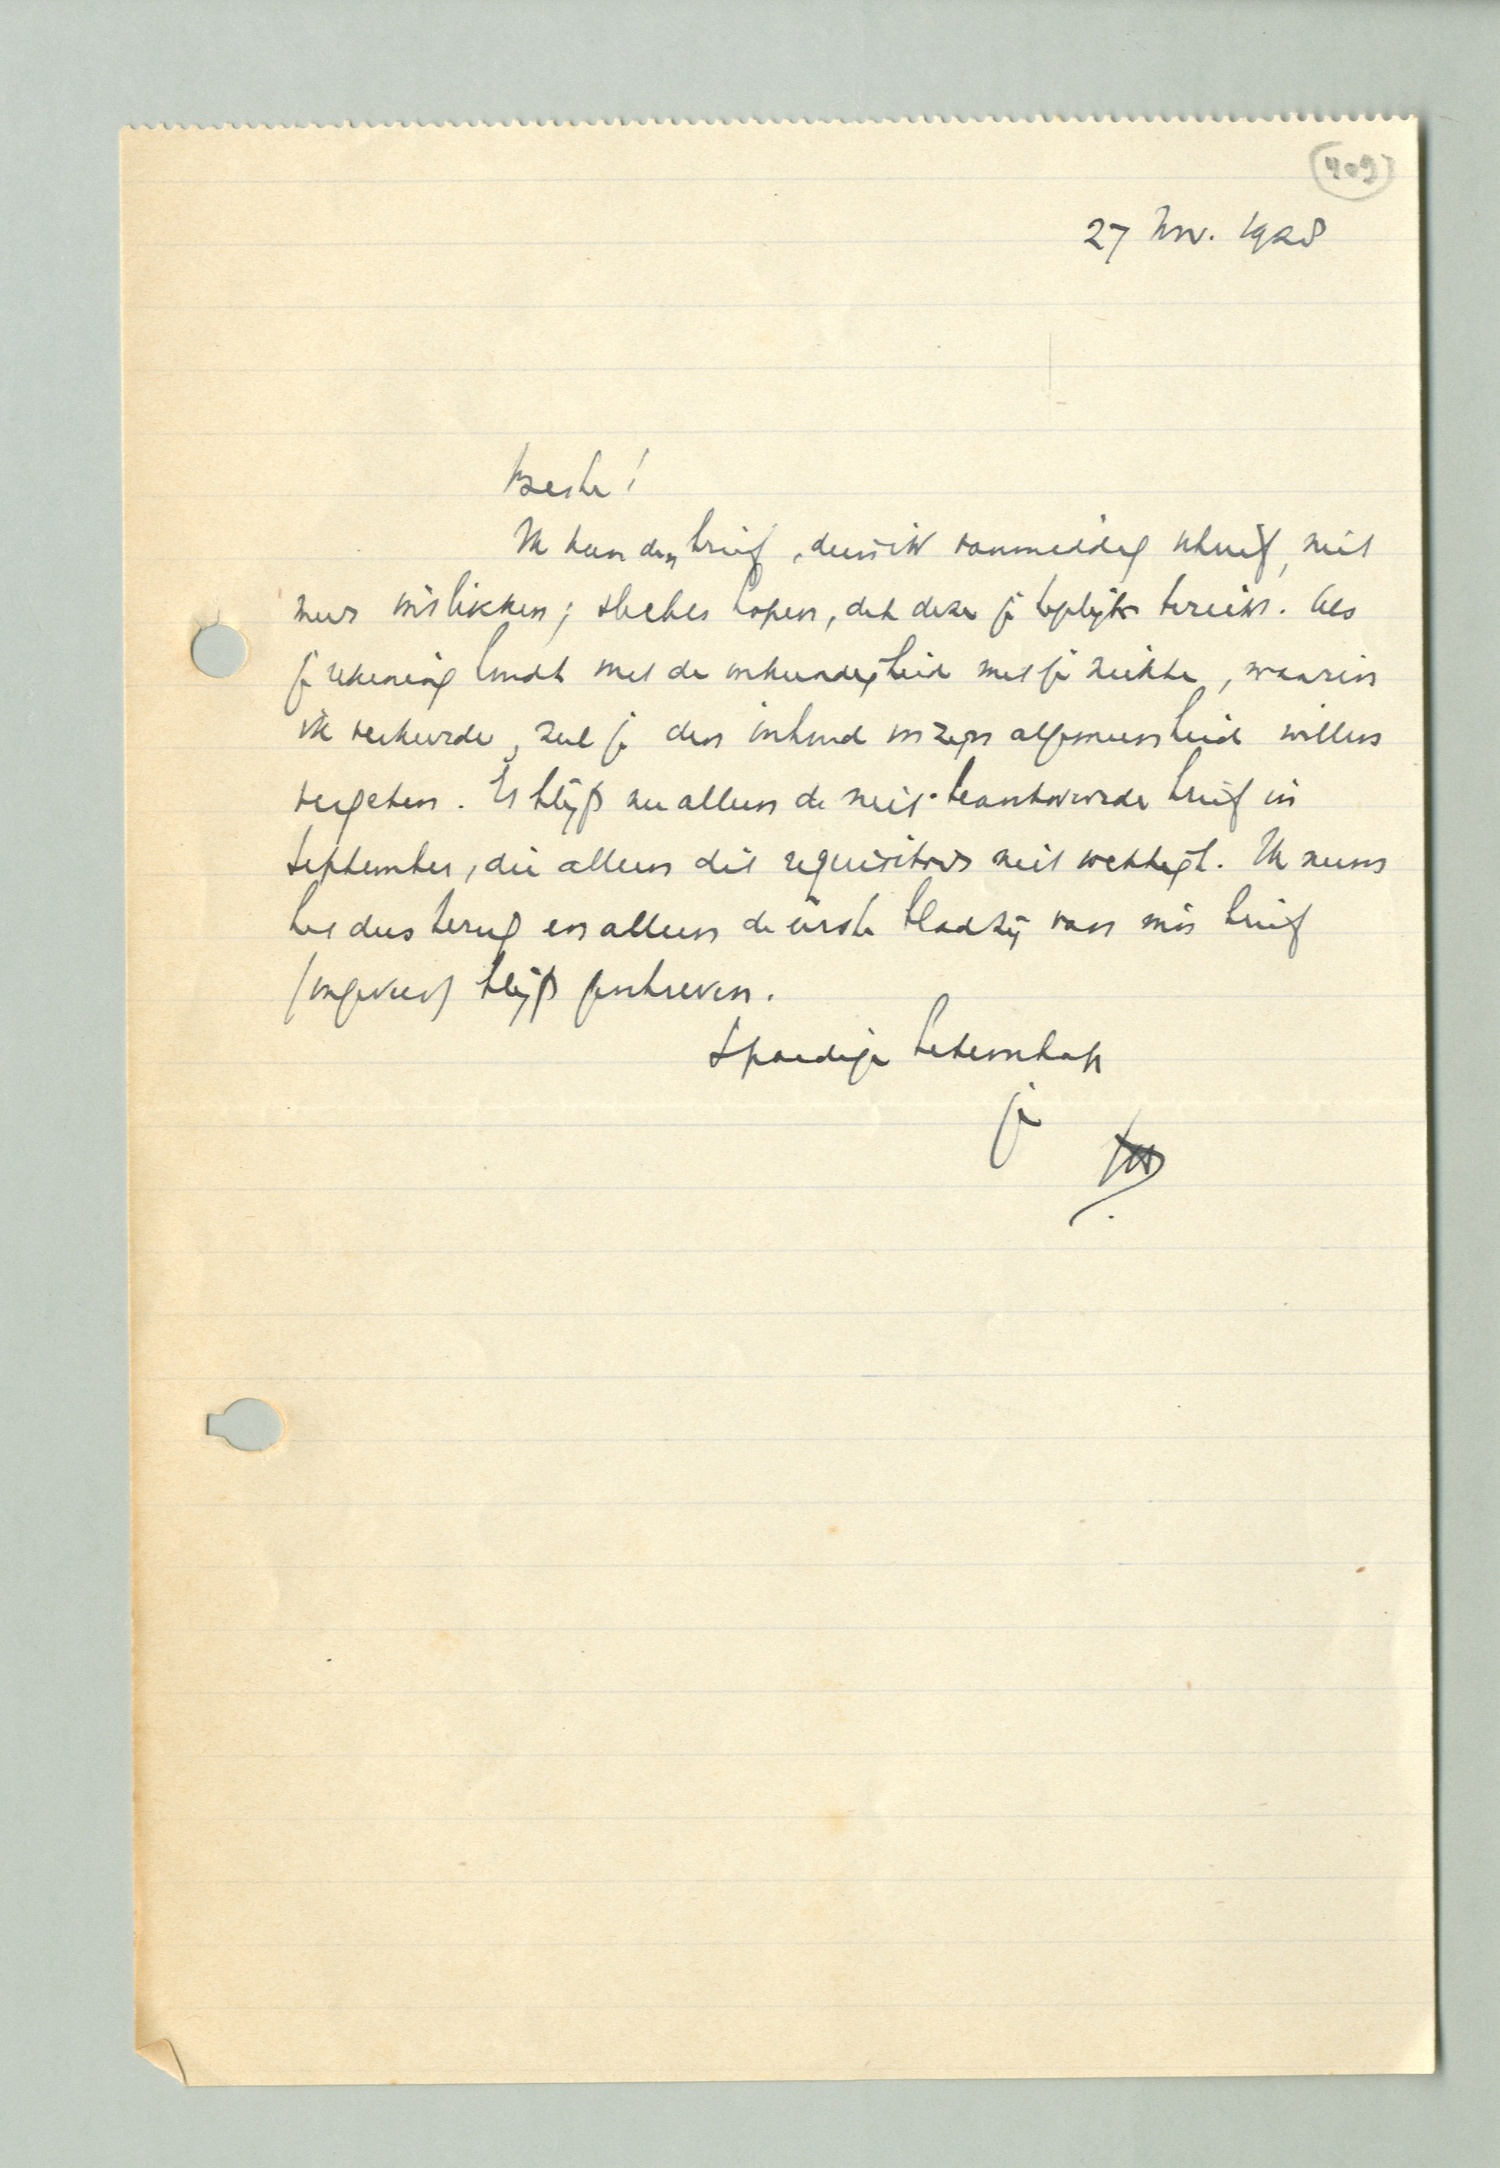 409
27 Nov. 1928
Beste!
Ik kan den brief, dien ik vanmiddag schreef, niet
meer inslikken; slechts hopen, dat deze je tegelijk bereikt. Als
je rekening houdt met de onkundigheid met je ziekte, waarin
ik verkeerde, zul je den inhoud onzer algemeenheid willen
vergeten. Er blijft nu alleen de niet-beantwoorde brief in
September, die alleen dit requisitoir niet wettigt. Ik neem
het dus terug en alleen de eerste bladzij van mijn brief
(ongeveer) blijft geschreven.
Spoedige beterschap
je